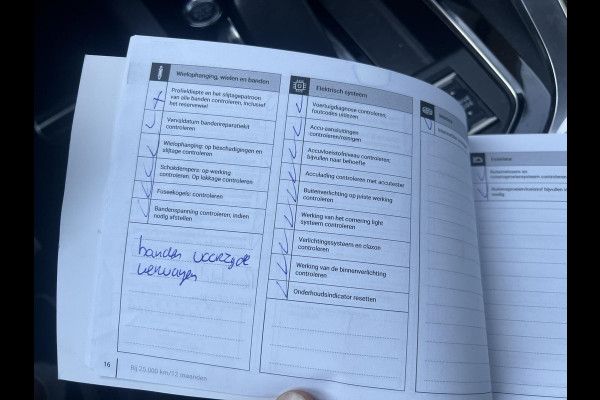 Wielophanging, wielen en banden
Profieldiepte en het slijtagepatroon
van alle banden controleren, inclusief
het reservewiel
Vervaldatum bandenreparatiekit
controleren
Wielophanging: op beschadigingen en
slijtage controleren
Schokdempers: op werking
controleren. Op lekkage controleren
Fuseekogels: controleren
Bandenspanning controleren; indien
nodig afstellen
banden voorzijde
vervangen
16
Bij 25.000 km/12 maanden
Elektrisch systeem
Voertuigdiagnose controleren;
foutcodes uitlezen
Accu-aansluitingen
controleren/reinigen
Accuvloeistofniveau controleren;
bijvullen naar behoefte
Acculading controleren met accutester
Buitenverlichting op juiste werking
controleren
Werking van het cornering light
systeem controleren
Verlichtingssysteem en claxon
controleren
Werking van de binnenverlichting
controleren
Onderhoudsindicator resetten